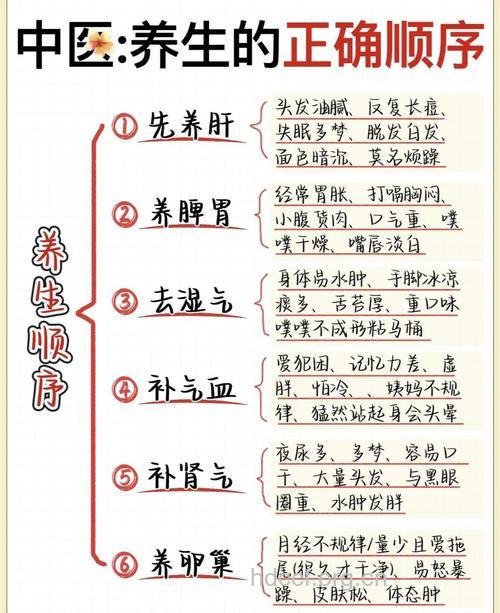 中医:养生的正确顺序
养生顺序
① 先养肝
头发油腻、反复长痘、
失眠多梦、脱发白发、
面色暗沉、莫名烦躁
② 养脾胃
经常胃胀、打嗝胸闷、
小腹赘肉、口气重、噗
噗干燥、嘴唇淡白
③ 去湿气
身体易水肿、手脚冰凉
痰多、舌苔厚、重口味
噗噗不成形粘马桶
④ 补气血
爱犯困、记忆力差、虚
胖、怕冷、、姨妈不规
律、猛然站起身会头晕
⑤ 补肾气
夜尿多、多梦、容易口
干、大量头发、与黑眼
圈重、水肿发胖
⑥ 养卵巢
月经不规律/量少且爱拖
尾(很久才干净)、易怒暴
躁、皮肤松、体态肿